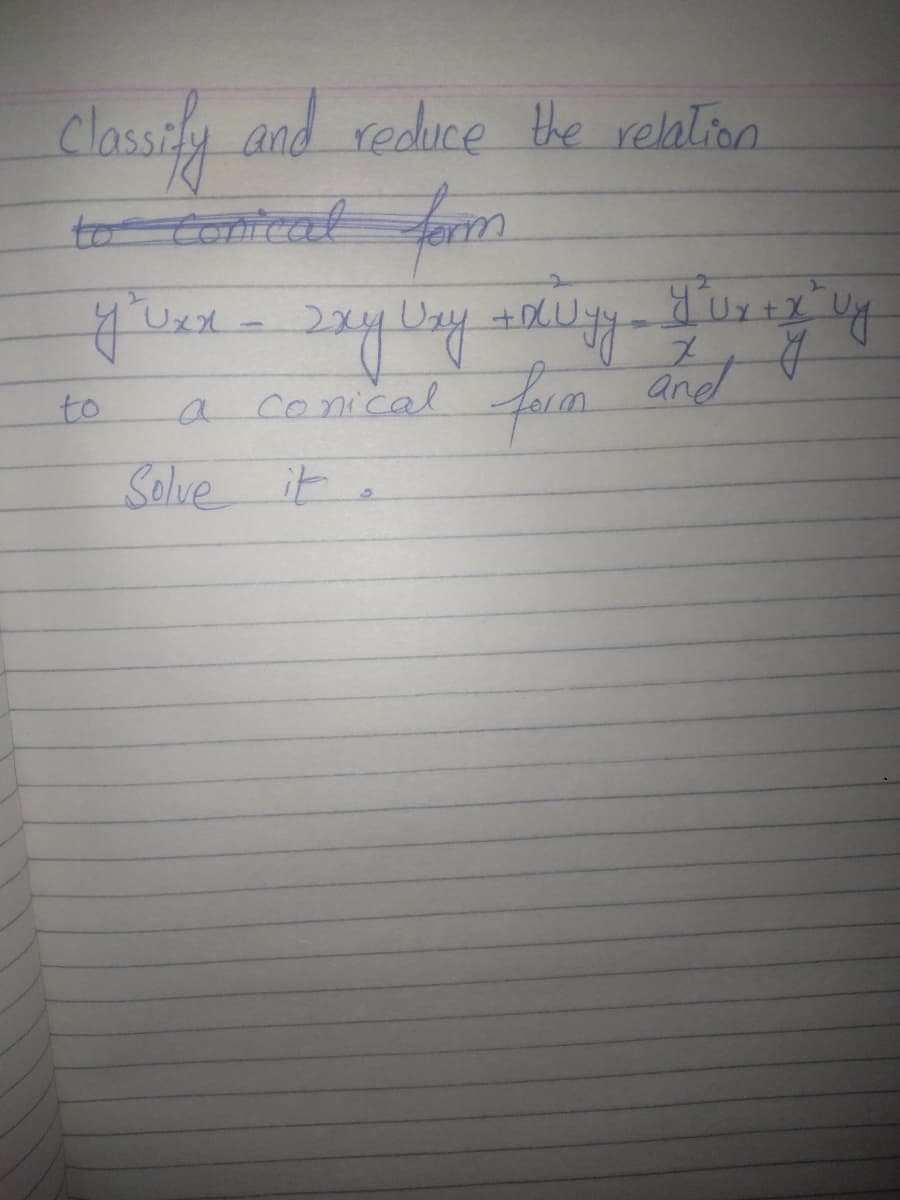 Classify and reduce the relation
to conical form
y²Uxx - 2xy Uxy + x²Uyy = y²/x Ux + x²/y Uy
to a conical form and
Solve it.